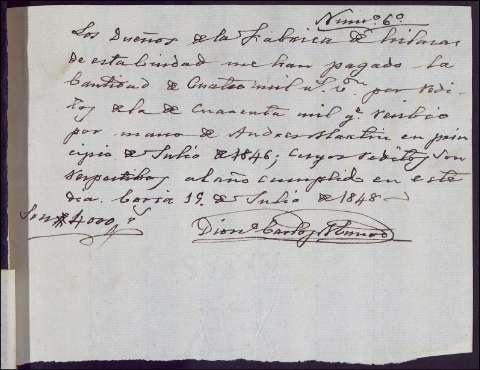 Num.º 6.º
Los Dueños de la Fabrica de hilaras
de esta Ciudad me han pagado la
Cantidad de Cuatro mil r.s v.n por redi-
tos de la de Cuarenta mil q.e recibió
por mano de Andres Martin en prin-
cipio de Julio de 1846; cuyos reditos son
respectibos al año cumplido en este
dia. Coria 19 de Julio de 1848
Son 4000 r.s
Dion.º Carlos